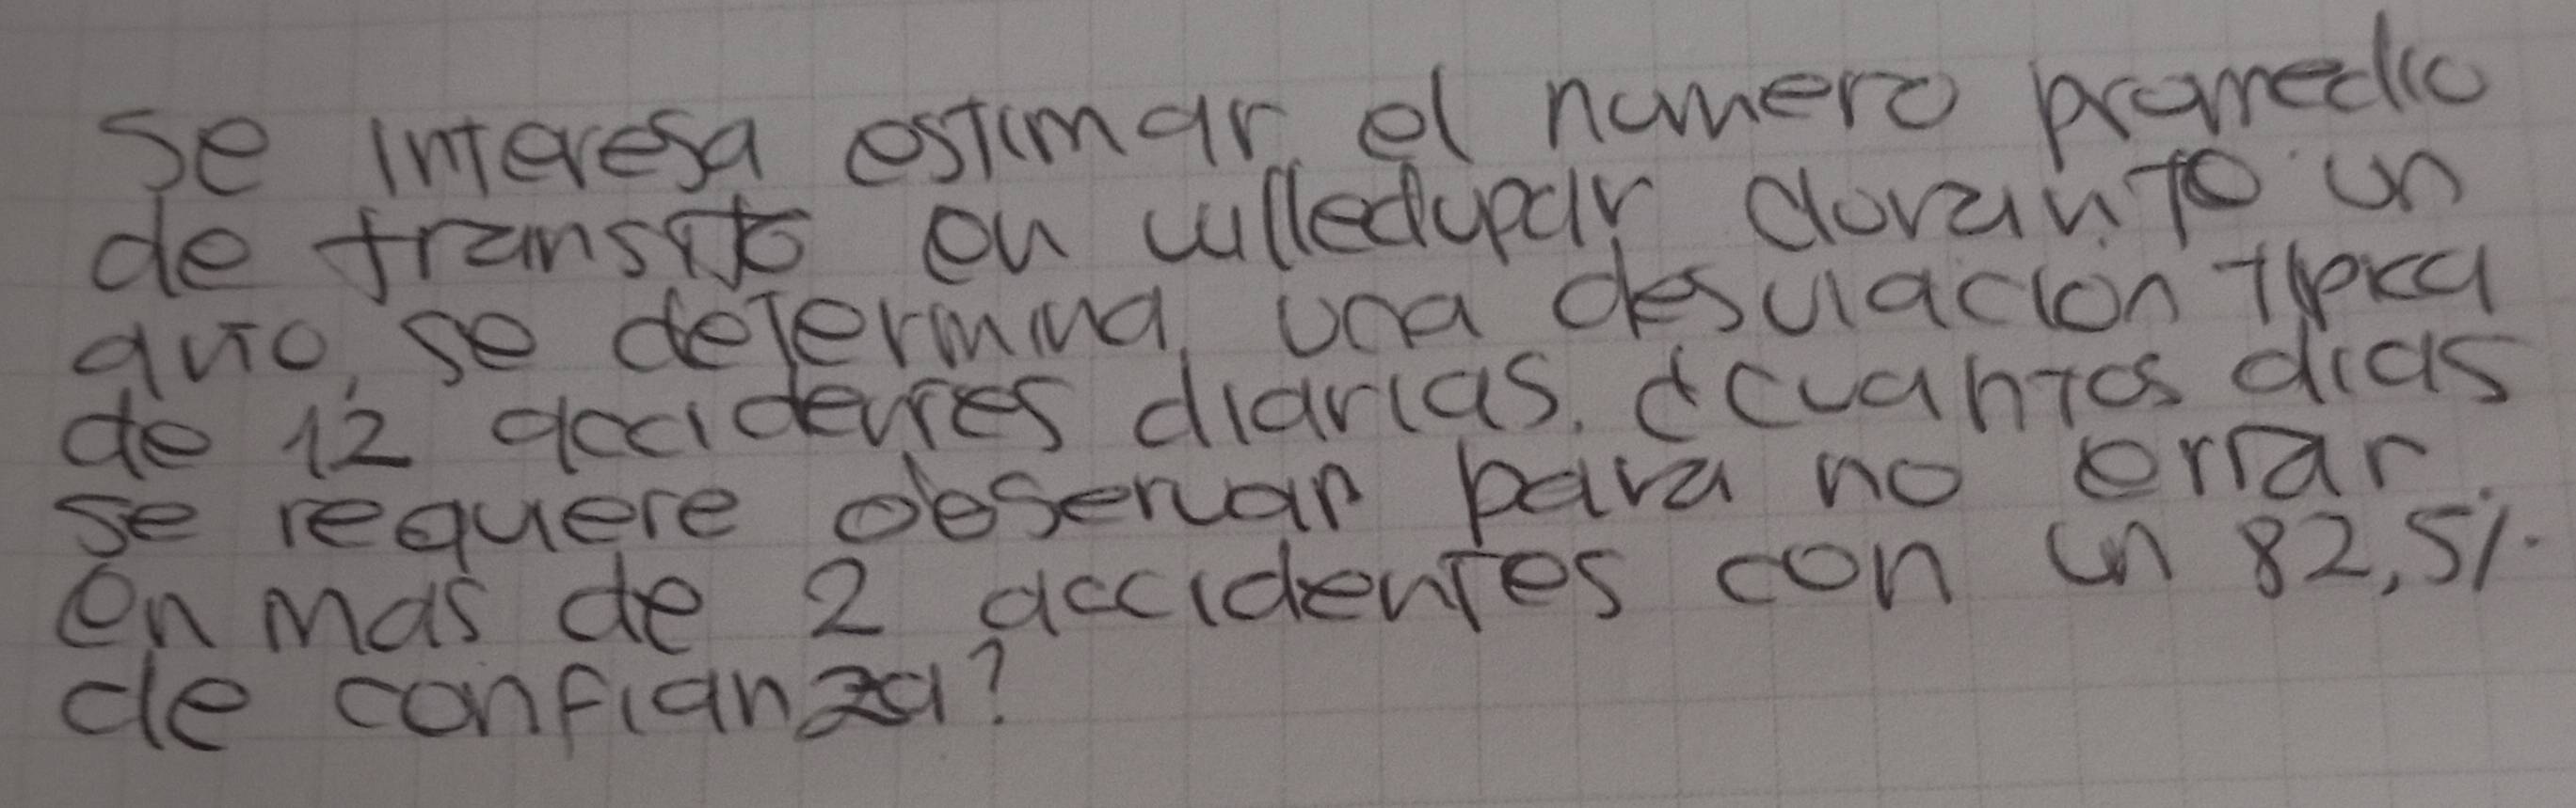 Se interesa estimar el numero promedio
de transito en valledupar durante un
año, se determina una desviacion tipica
de 12 accidentes diarias. ¿cuantos dias
se requiere observar para no errar
en mas de 2 accidentes con un 82,5%
de confianza?